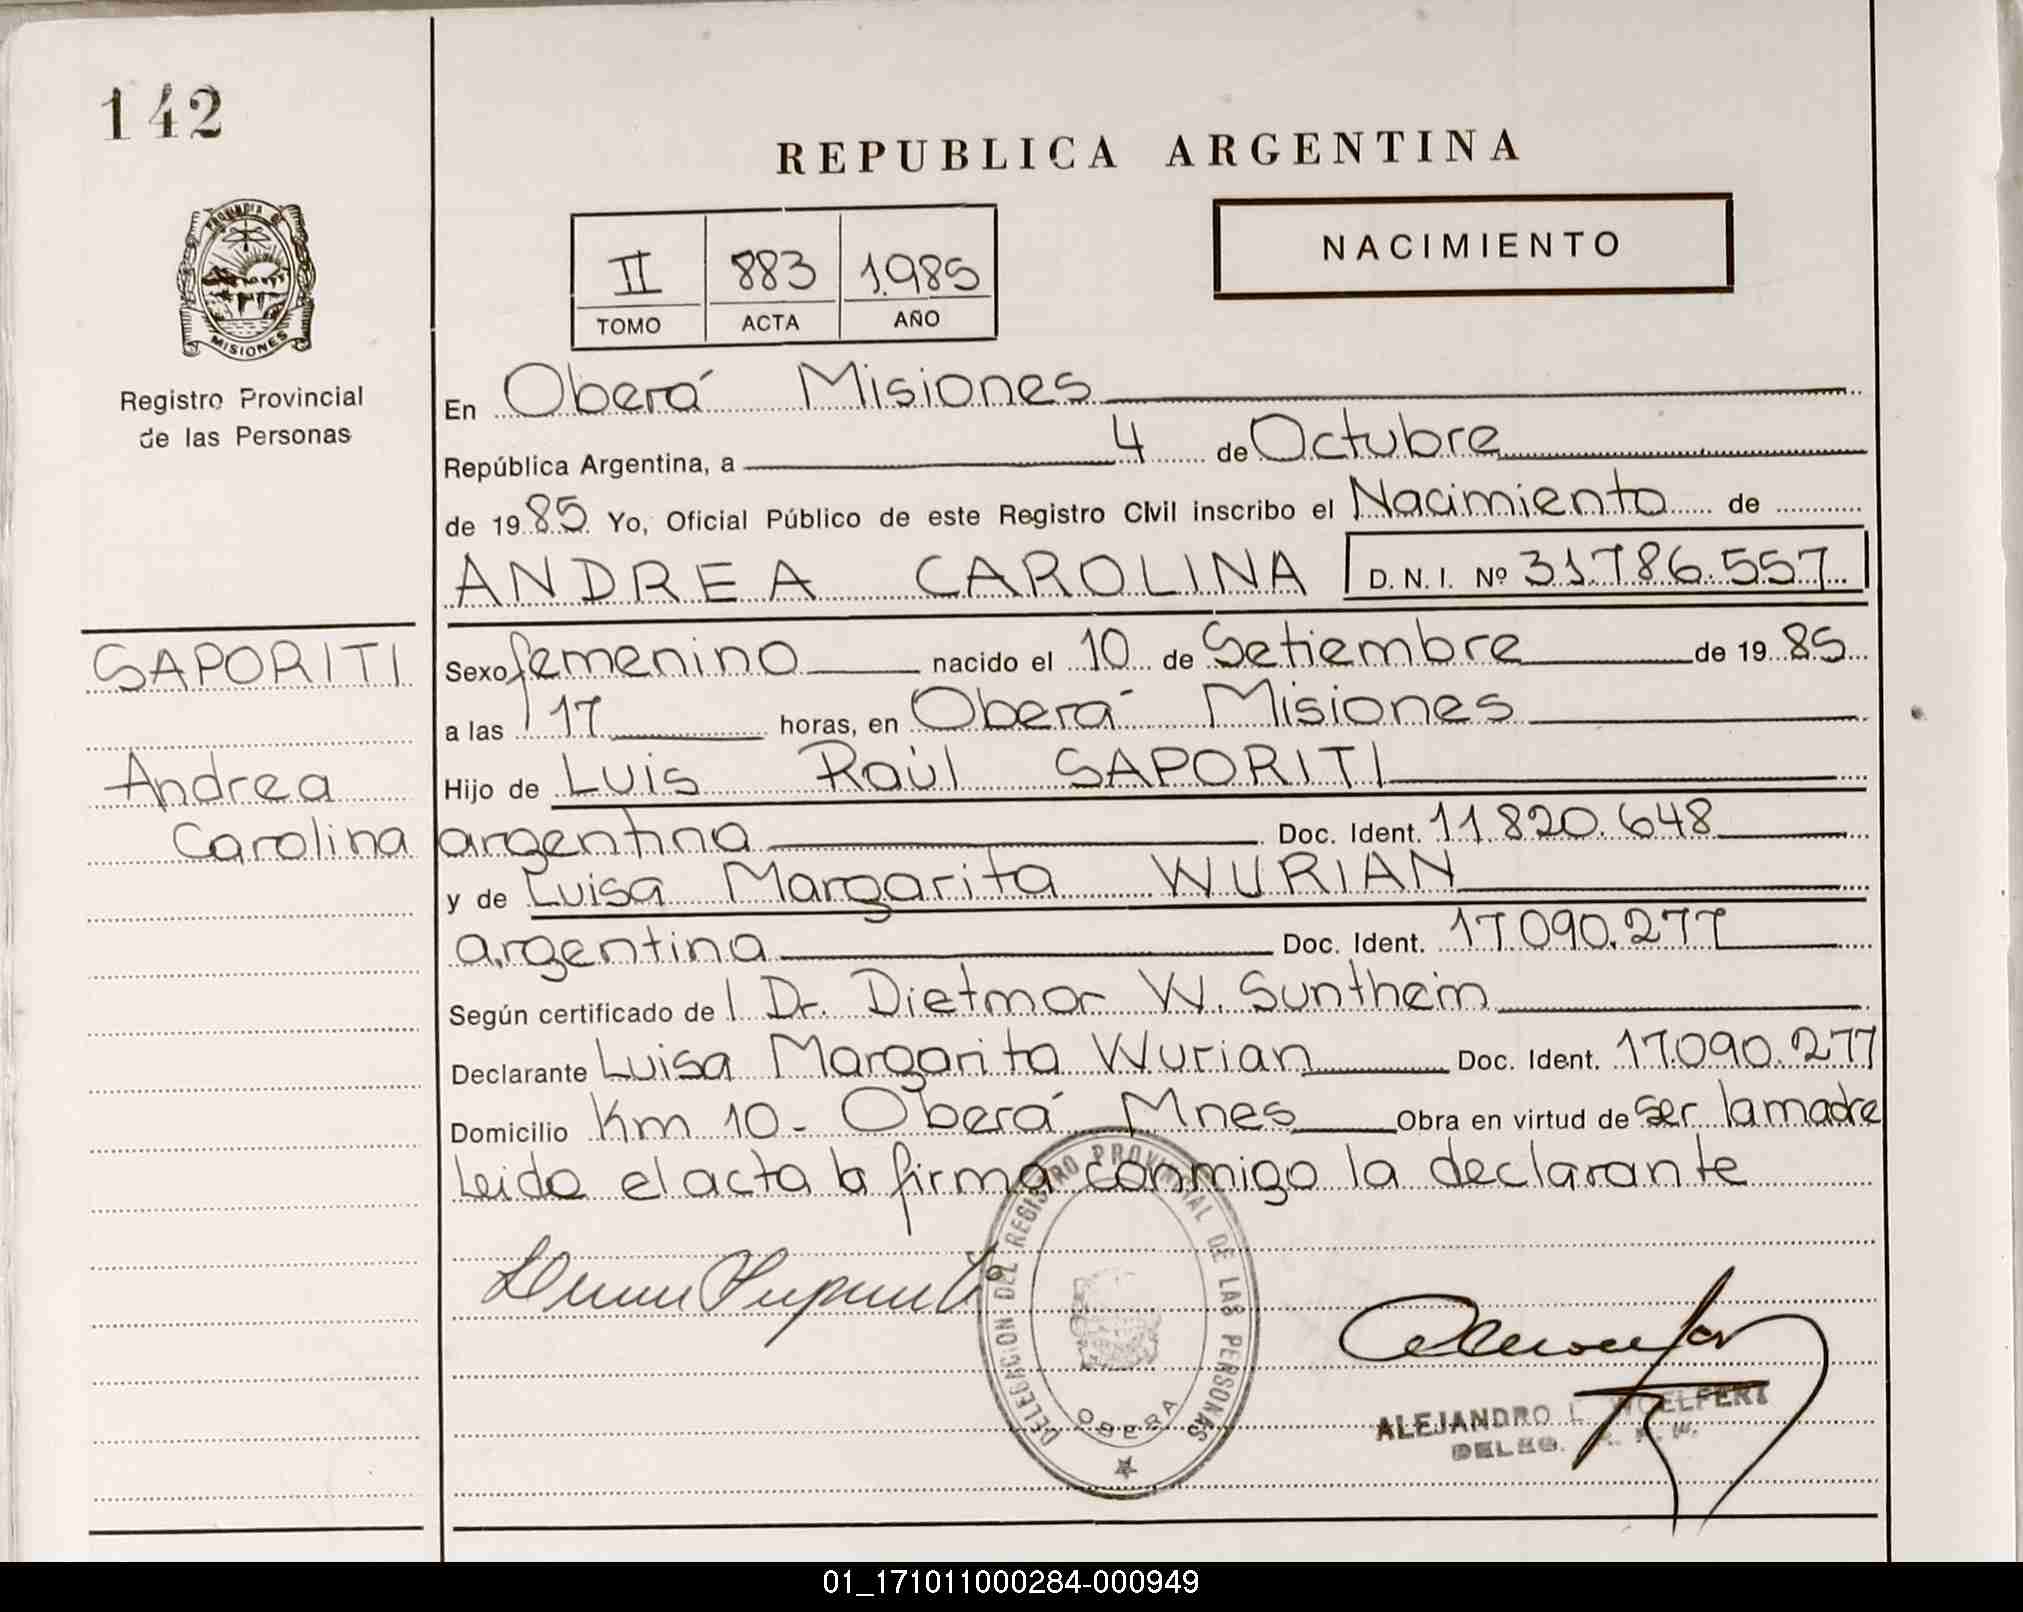 142
REPUBLICA ARGENTINA
PROVINCIA DE
MISIONES
Registro Provincial
de las Personas
II 883 1.985
TOMO ACTA AÑO
NACIMIENTO
En Oberá Misiones
República Argentina, a 4 de Octubre
de 1985 Yo, Oficial Público de este Registro Civil inscribo el Nacimiento de
ANDREA CAROLINA D. N. I. Nº 31.786.557
SAPORITI
Andrea
Carolina
Sexo femenino nacido el 10 de Setiembre de 1985
a las 17 horas, en Oberá Misiones
Hijo de Luis Raúl SAPORITI
argentina Doc. Ident. 11.820.648
y de Luisa Margarita WURIAN
argentina Doc. Ident. 17.090.277
Según certificado de l Dr. Dietmar W. Sunthein
Declarante Luisa Margarita Wurian Doc. Ident. 17.090.277
Domicilio Km 10 - Oberá Mnes Obra en virtud de ser la madre
Leida el acta la firma conmigo la declarante
DELEGACION DEL REGISTRO PROVINCIAL DE LAS PERSONAS
OBERA
ALEJANDRO L. WOELFERT
DELEG.
01_171011000284-000949